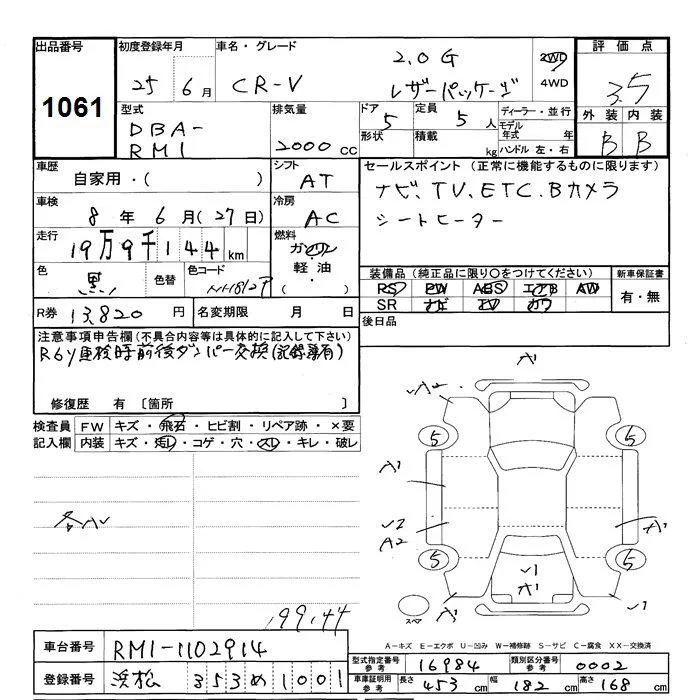 出品番号 初度登録年月 車名・グレード 評価点
1061 25 6月 CR-V 2.0G 2WD 4WD 3.5
レザーパッケージ
外装 内装
B B
型式 排気量 ドア 定員 ディーラー・並行
DBA- 5 5人 モデル年式 年
RM1 2000cc 形状 積載 kg ハンドル 左・右
車歴 シフト セールスポイント (正常に機能するものに限ります)
自家用・( ) AT ナビ、TV、ETC、Bカメラ
車検 冷房 シートヒーター
8年 6月(27日) AC
走行 燃料
19万9千144km ガソリン
軽油・
色 色替 色コード 装備品 (純正品に限り○をつけてください) 新車保証書
黒 PS PW ABS エアB AW 有・無
SR ナビ TV カワ
R券 13,820円 名変期限 月 日 後日品
注意事項申告欄(不具合内容等は具体的に記入して下さい)
R6y車検時前後ダンパー交換(記録簿有)
修復歴 有 [箇所 ]
検査員 FW キズ・飛石・ヒビ割・リペア跡・×要
記入欄 内装 キズ・汚レ・コゲ・穴・スレ・キレ・破レ
A1
A2
5 5
A1
A2 A1
5 5
A1
199,144
A-キズ E-エクボ U-凹み W-補修跡 S-サビ C-腐食 XX-交換済
車台番号 RM1-1102914
型式指定番号 参考 16984 類別区分番号 参考 0002
登録番号 浜松 353 め 1001
車庫証明用 参考 長さ 453cm 幅 182cm 高さ 168cm